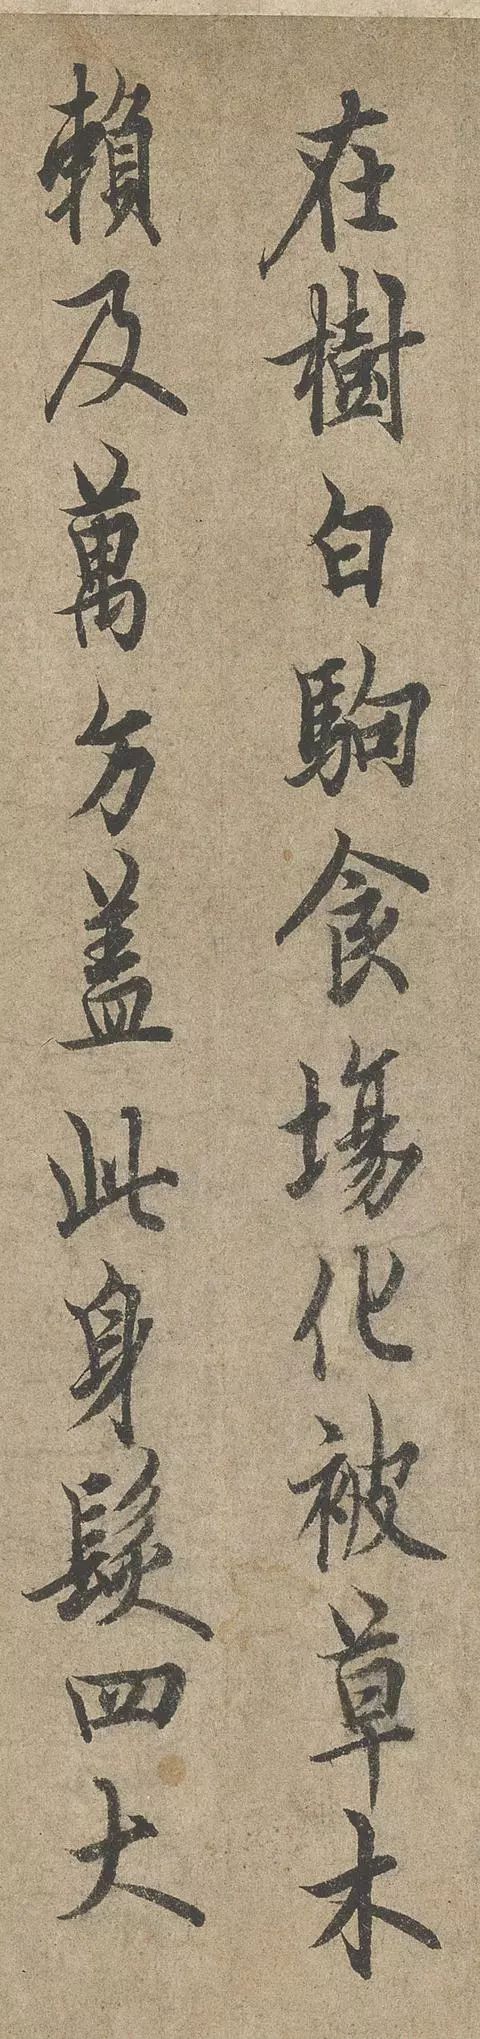 在樹白駒食場化被草木
賴及萬方盖此身髮四大